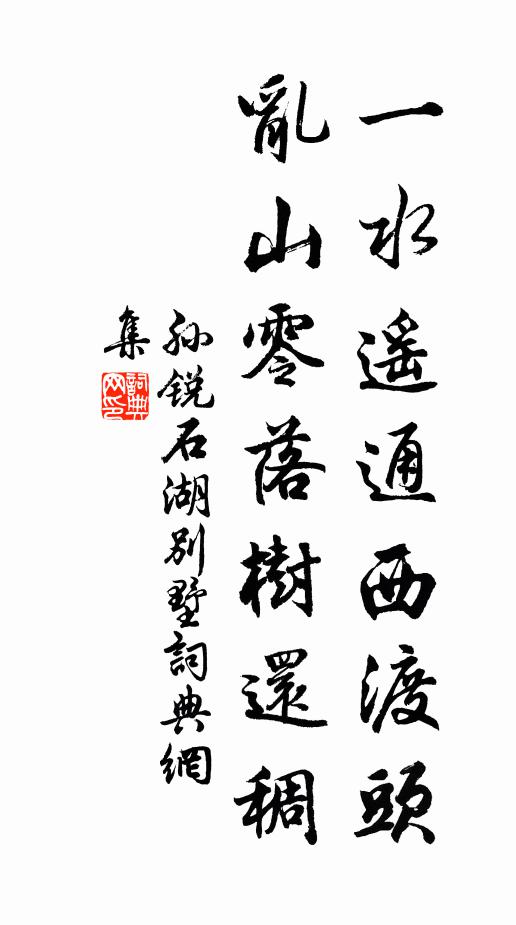 一水遥通西渡頭
亂山零落樹還稠
孫銳石湖別墅詞典網
集
詞典
网印